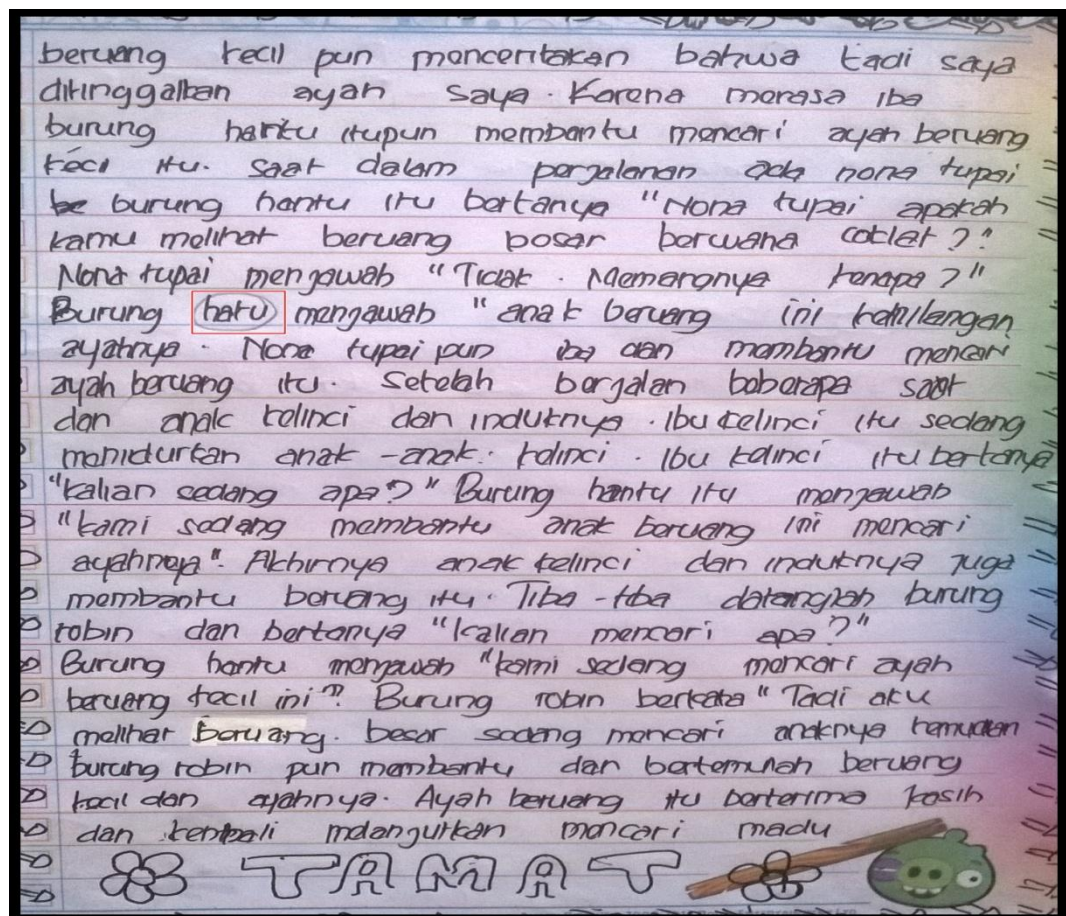 beruang kecil pun menceritakan bahwa tadi saya
ditinggalkan ayah saya. Karena merasa iba
burung hantu itupun membantu mencari ayah beruang
kecil itu. saat dalam perjalanan ada nona tupai
be burung hantu itu bertanya "Nona tupai apakah
kamu melihat beruang besar berwana coklat?"
Nona tupai menjawab "Tidak. Memangnya kenapa?"
Burung hatu menjawab "anak beruang ini kehilangan
ayahnya. Nona tupai pun iba dan membantu mencari
ayah beruang itu. Setelah berjalan beberapa saat
dan anak kelinci dan induknya. Ibu kelinci itu sedang
menidurkan anak-anak kelinci. Ibu kelinci itu bertanya
"kalian sedang apa?" Burung hantu itu menjawab
"kami sedang membantu anak beruang ini mencari
ayahnya". Akhirnya anak kelinci dan induknya juga
membantu beruang itu. Tiba-tiba datanglah burung
robin dan bertanya "kalian mencari apa?"
Burung hantu menjawab "kami sedang mencari ayah
beruang kecil ini"? Burung robin berkata "Tadi aku
melihat beruang. besar sedang mencari anaknya kemudian
burung robin pun membantu dan bertemulah beruang
kecil dan ayahnya. Ayah beruang itu berterima kasih
dan kembali melanjutkan mencari madu
TAMAT